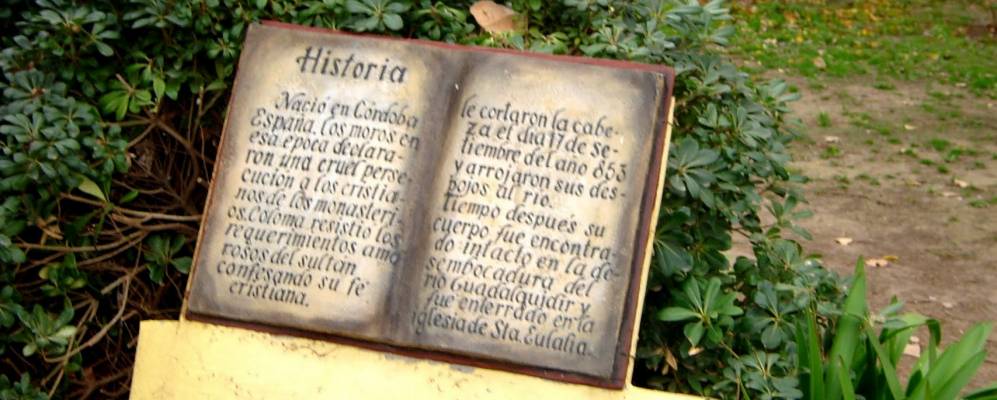 Historia
Nació en Córdoba
España. Los moros en
esa epoca declara-
ron una cruel perse-
cucion a los cristia-
nos de los monasteri-
os. Coloma resistio los
requerimientos amo
rosos del sultan
confesando su fe
cristiana.
le cortaron la cabe-
za el dia 17 de se-
tiembre del año 853
y arrojaron sus des-
pojos al rio.
Tiempo después su
cuerpo fue encontra-
do intacto en la de-
sembocadura del
rio Guadalquidir y
fue enterrado en la
iglesia de Sta. Eulalia.